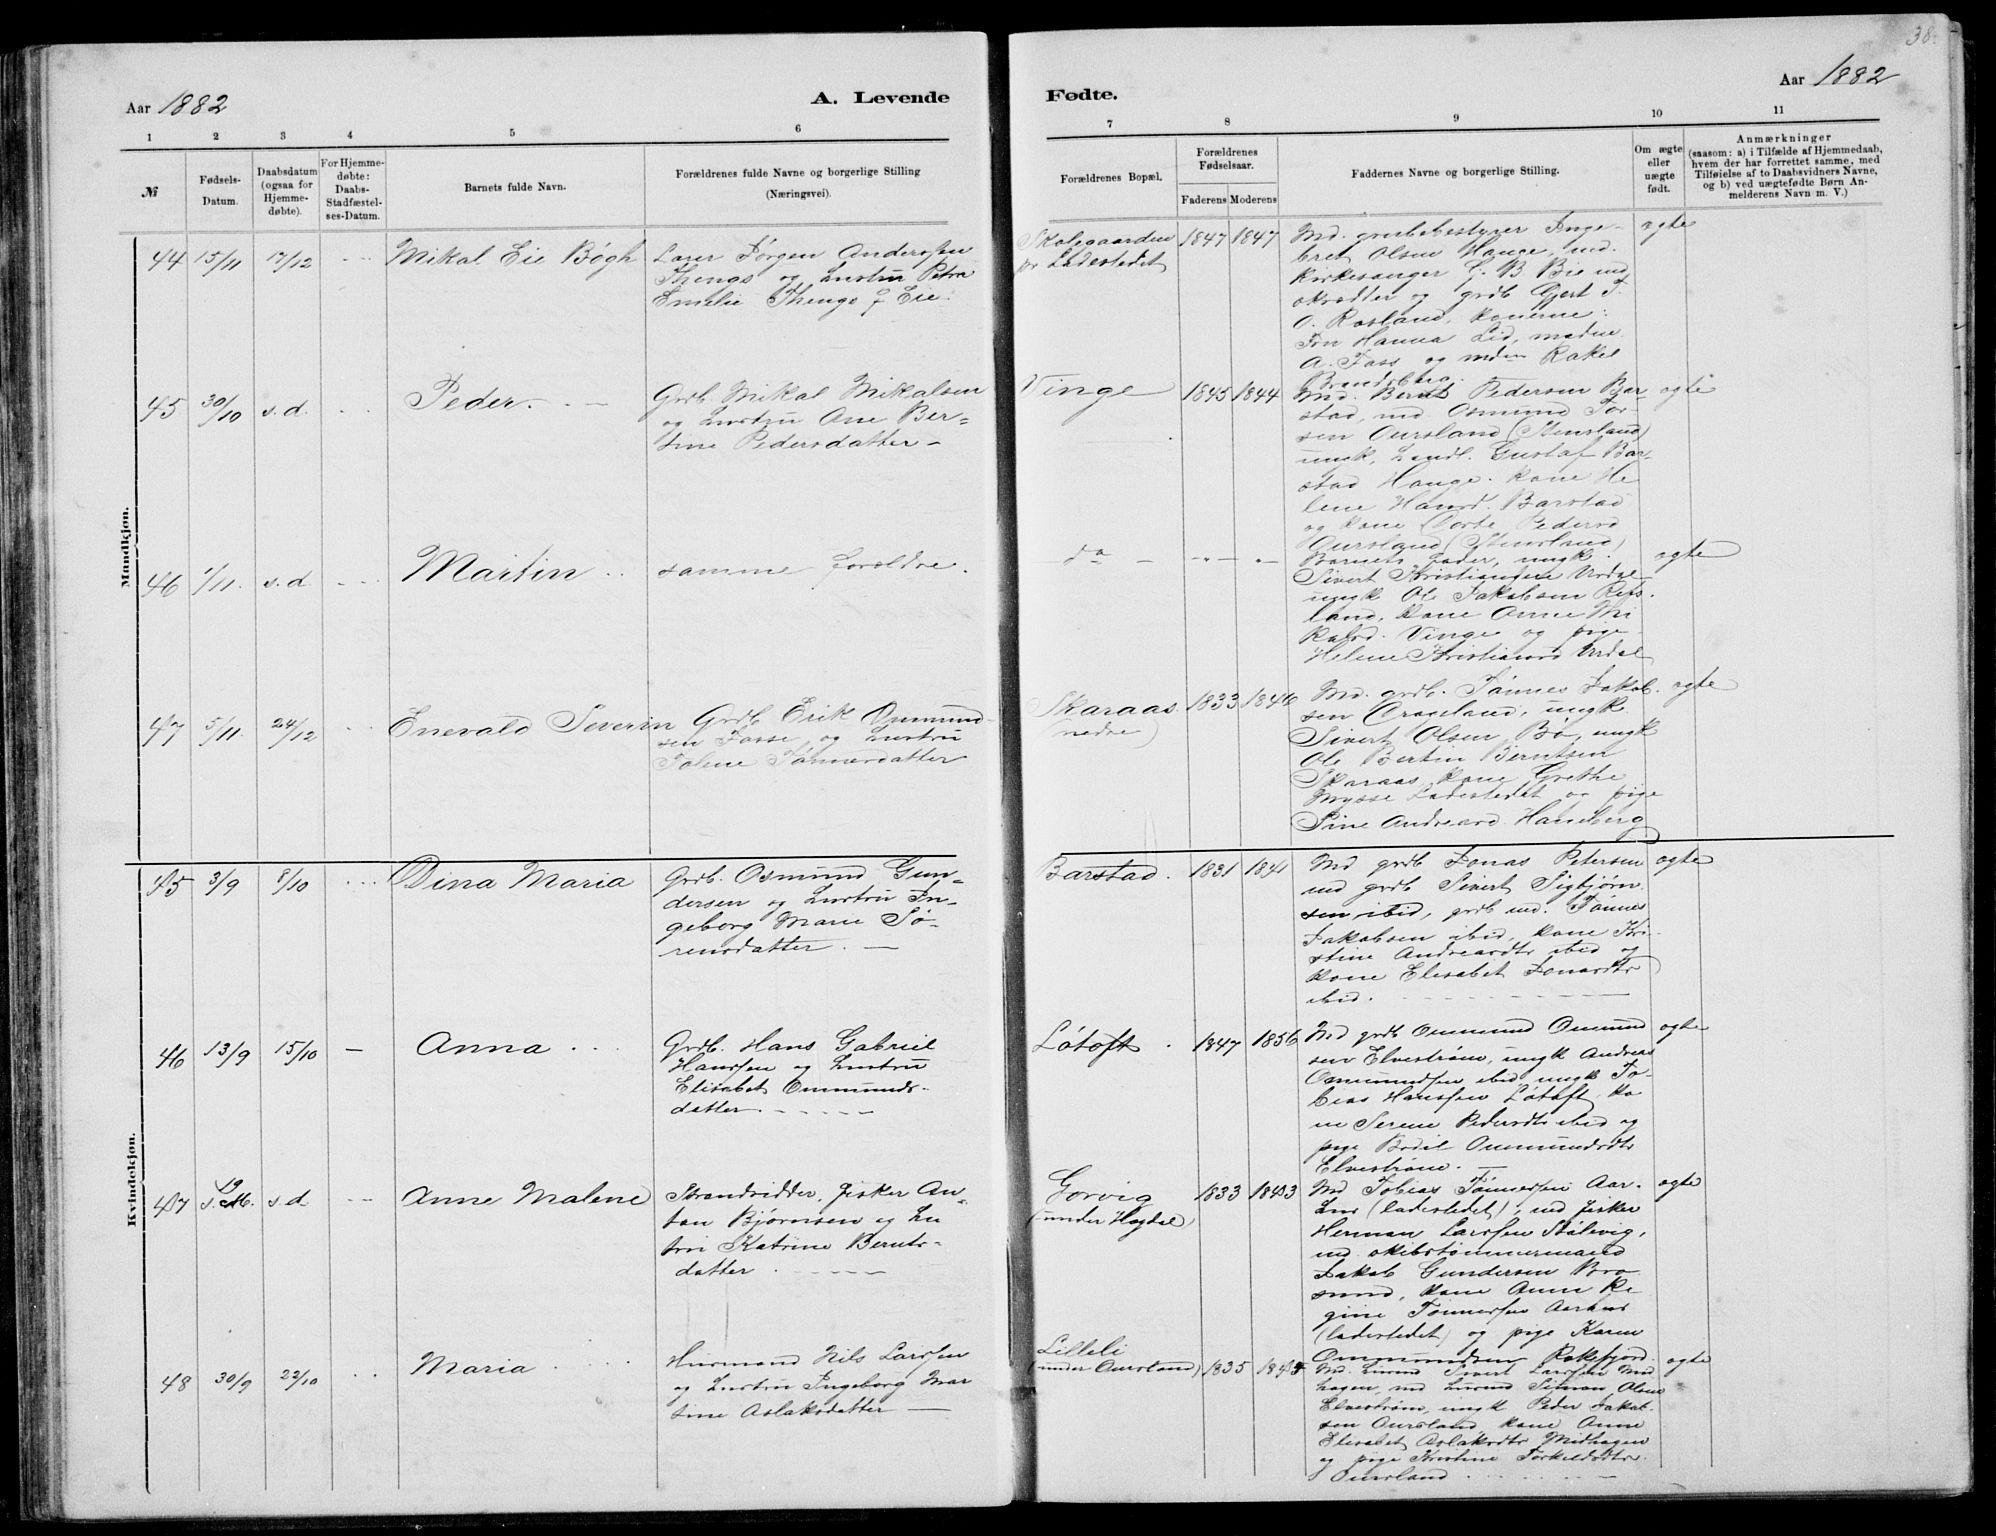 38.
Aar 1882
A. Levende
Fødte.
Aar 1882
1 2 3 4 5 6 7 8 9 10 11
№
Fødsels-
Datum.
Daabsdatum
(ogsaa for
Hjemme-
døbte).
For Hjemme-
døbte:
Daabs-
Stadfæstel-
ses-Datum.
Barnets fulde Navn.
Forældrenes fulde Navne og borgerlige Stilling
(Næringsvei).
Forældrenes Bopæl.
Forældrenes
Fødselsaar.
Faderens Moderens
Faddernes Navne og borgerlige Stilling.
Om ægte
eller
uægte
født.
Anmærkninger
(saasom: a) i Tilfælde af Hjemmedaab,
hvem der har forrettet samme, med
Tilføielse af to Daabsvidners Navne,
og b) ved uægtefødte Børn An-
melderens Navn m. V.)
Mandkjøn.
44 15/11 17/12 Mikal Eie Bøgh
Lærer Jørgen Anderssen
Thengs og hustru Petra
Emelie Thengs f. Eie.
Skolegaarden
pr Ladestedet
1847 1847
bret Olsen Hauge, md.
Kirkesanger G. B. Bie md
skrædder og grdb Gjert T.
O. Rosland, konerne:
Fru Hanna Lid, madme
A. Foss og mdm Rakel
Brandsberg.
ægte
45 30/10 s.d. Peder. –
Grdb. Mikal Mikalsen
og hustru Ane Ber=
tine Pedersdatter –
Vinge
1845 1844
Md. Bernt Pedersen Bar
stad, md Osmund Tor-
sen Oursland (Stensland)
ungk. handl. Gustaf Bar-
stad Hauge. kone He
lene Hansd. Barstad
og kone Dorte Pedersd
Oursland (Stensland)
ægte
46 1/11. s.d. Martin
samme forældre.
do
Barnets fader, ungk.
Sivert Kristiansen Urdal
ungk Ole Jakobsen Refs-
land, kone Anne Mi
kalsd. Vinge og pige
Helene Kristiansd Urdal
ægte
47 5/11. 24/12 Enevald Severin
Grdb Erik Osmund-
sen Fosse og hustru
Tolene Tønnesdatter
Skaraas
(nedre)
1833 1846
Md. grdb. Tønnes Jakob-
sen Drageland, ungk
Sivert Olsen Bø, ungk
Ole Bertin Berntsen
Skaraas, kone Grethe
Mysse Ladestedet og pige
Sine Andreasd. Haneberg
ægte
Kvindekjøn.
45 3/9 8/10 Dina Maria
Grdb. Osmund Gun-
dersen og hustru In-
geborg Marie Sø-
rensdatter. —
Barstad.
1831 1841
Md grdb Jonas Petersen
md grdb Sivert Sigbjørn
sen ibid, grdb md. Tønnes
Jakobsen ibid, kone Kri-
stine Andreasdtr ibid og
kone Elisabet Jonasdtr
ibid.
ægte
46 13/9 15/10 — Anna
Grdb. Hans Gabriel
Hanssen og hustru
Elisabet Ommunds-
datter.
Løtoft.
1847 1856
Md grdb Ommund Ommund
sen Elvestrøm, ungk Andreas
Ommundsen ibid, ungk To-
bias Hanssen Løtoft, ko
ne Serene Pedersdtr ibid og
pige Bodil Ommundsdtr
Elvestrøm. —
ægte
47 s.d. Anne Malene
Strandsidder, fisker An-
ton Bjørnsen og hu
stru Katrine Bernts-
datter.
Gorvig
(under Hogdal)
1833 1843
Md Tobias Tønnessen Aar-
hus (ladestedet); md fisker
Herman Larssen Stølevig,
md. skibstømmermand
Jakob Gundersen Bro
sund, kone Anne Re
gine Tønnessen Aarhus
(ladestedet) og pige Karen
Ommundsen Rakefjord.
ægte
48 30/9 22/10 Maria
Husmand Nils Larssen
og hustru Ingeborg Mar
tine Aslaksdatter —
Lilleli
(under Oursland)
1835
Md. husmd Sivert Larssen Mid
hagen, md husmd Simon Olsen
Elvestrøm, ungk Peder Jakob-
sen Oursland, kone Anne
Elisabet Aslaksdtr Midhagen
og pige Kristine Torkeldsdtr
Oursland
ægte